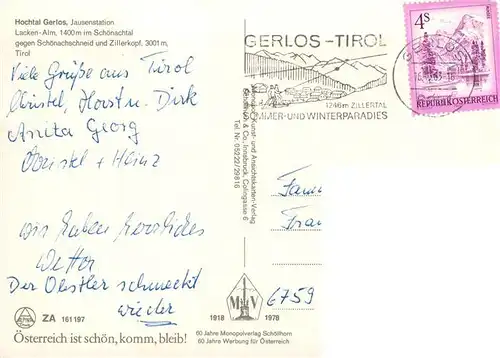 Hochtal Gerlos, Jausenstation
Lacken-Alm, 1400 m im Schönachtal
gegen Schönachschneid und Zillerkopf. 3001 m,
Tirol
Viele Grüße aus Tirol
Christel, Horst u. Dirk
Anita Georg
Heinz
wir haben herrliches
Wetter
Der Obstler schmeckt
wieder
ZA 161197
Österreich ist schön, komm, bleib!
GERLOS-TIROL
1246m ZILLERTAL
SOMMER-UND WINTERPARADIES
4S
REPUBLIK ÖSTERREICH
GERLOS
Kunst- und Ansichtskarten-Verlag
& Co., Innsbruck, Colingasse 6
Tel. Nr. 05222/29816
Fam
Fra
6759
1918
MV
1978
60 Jahre Monopolverlag Schöllhorn
60 Jahre Werbung für Österreich